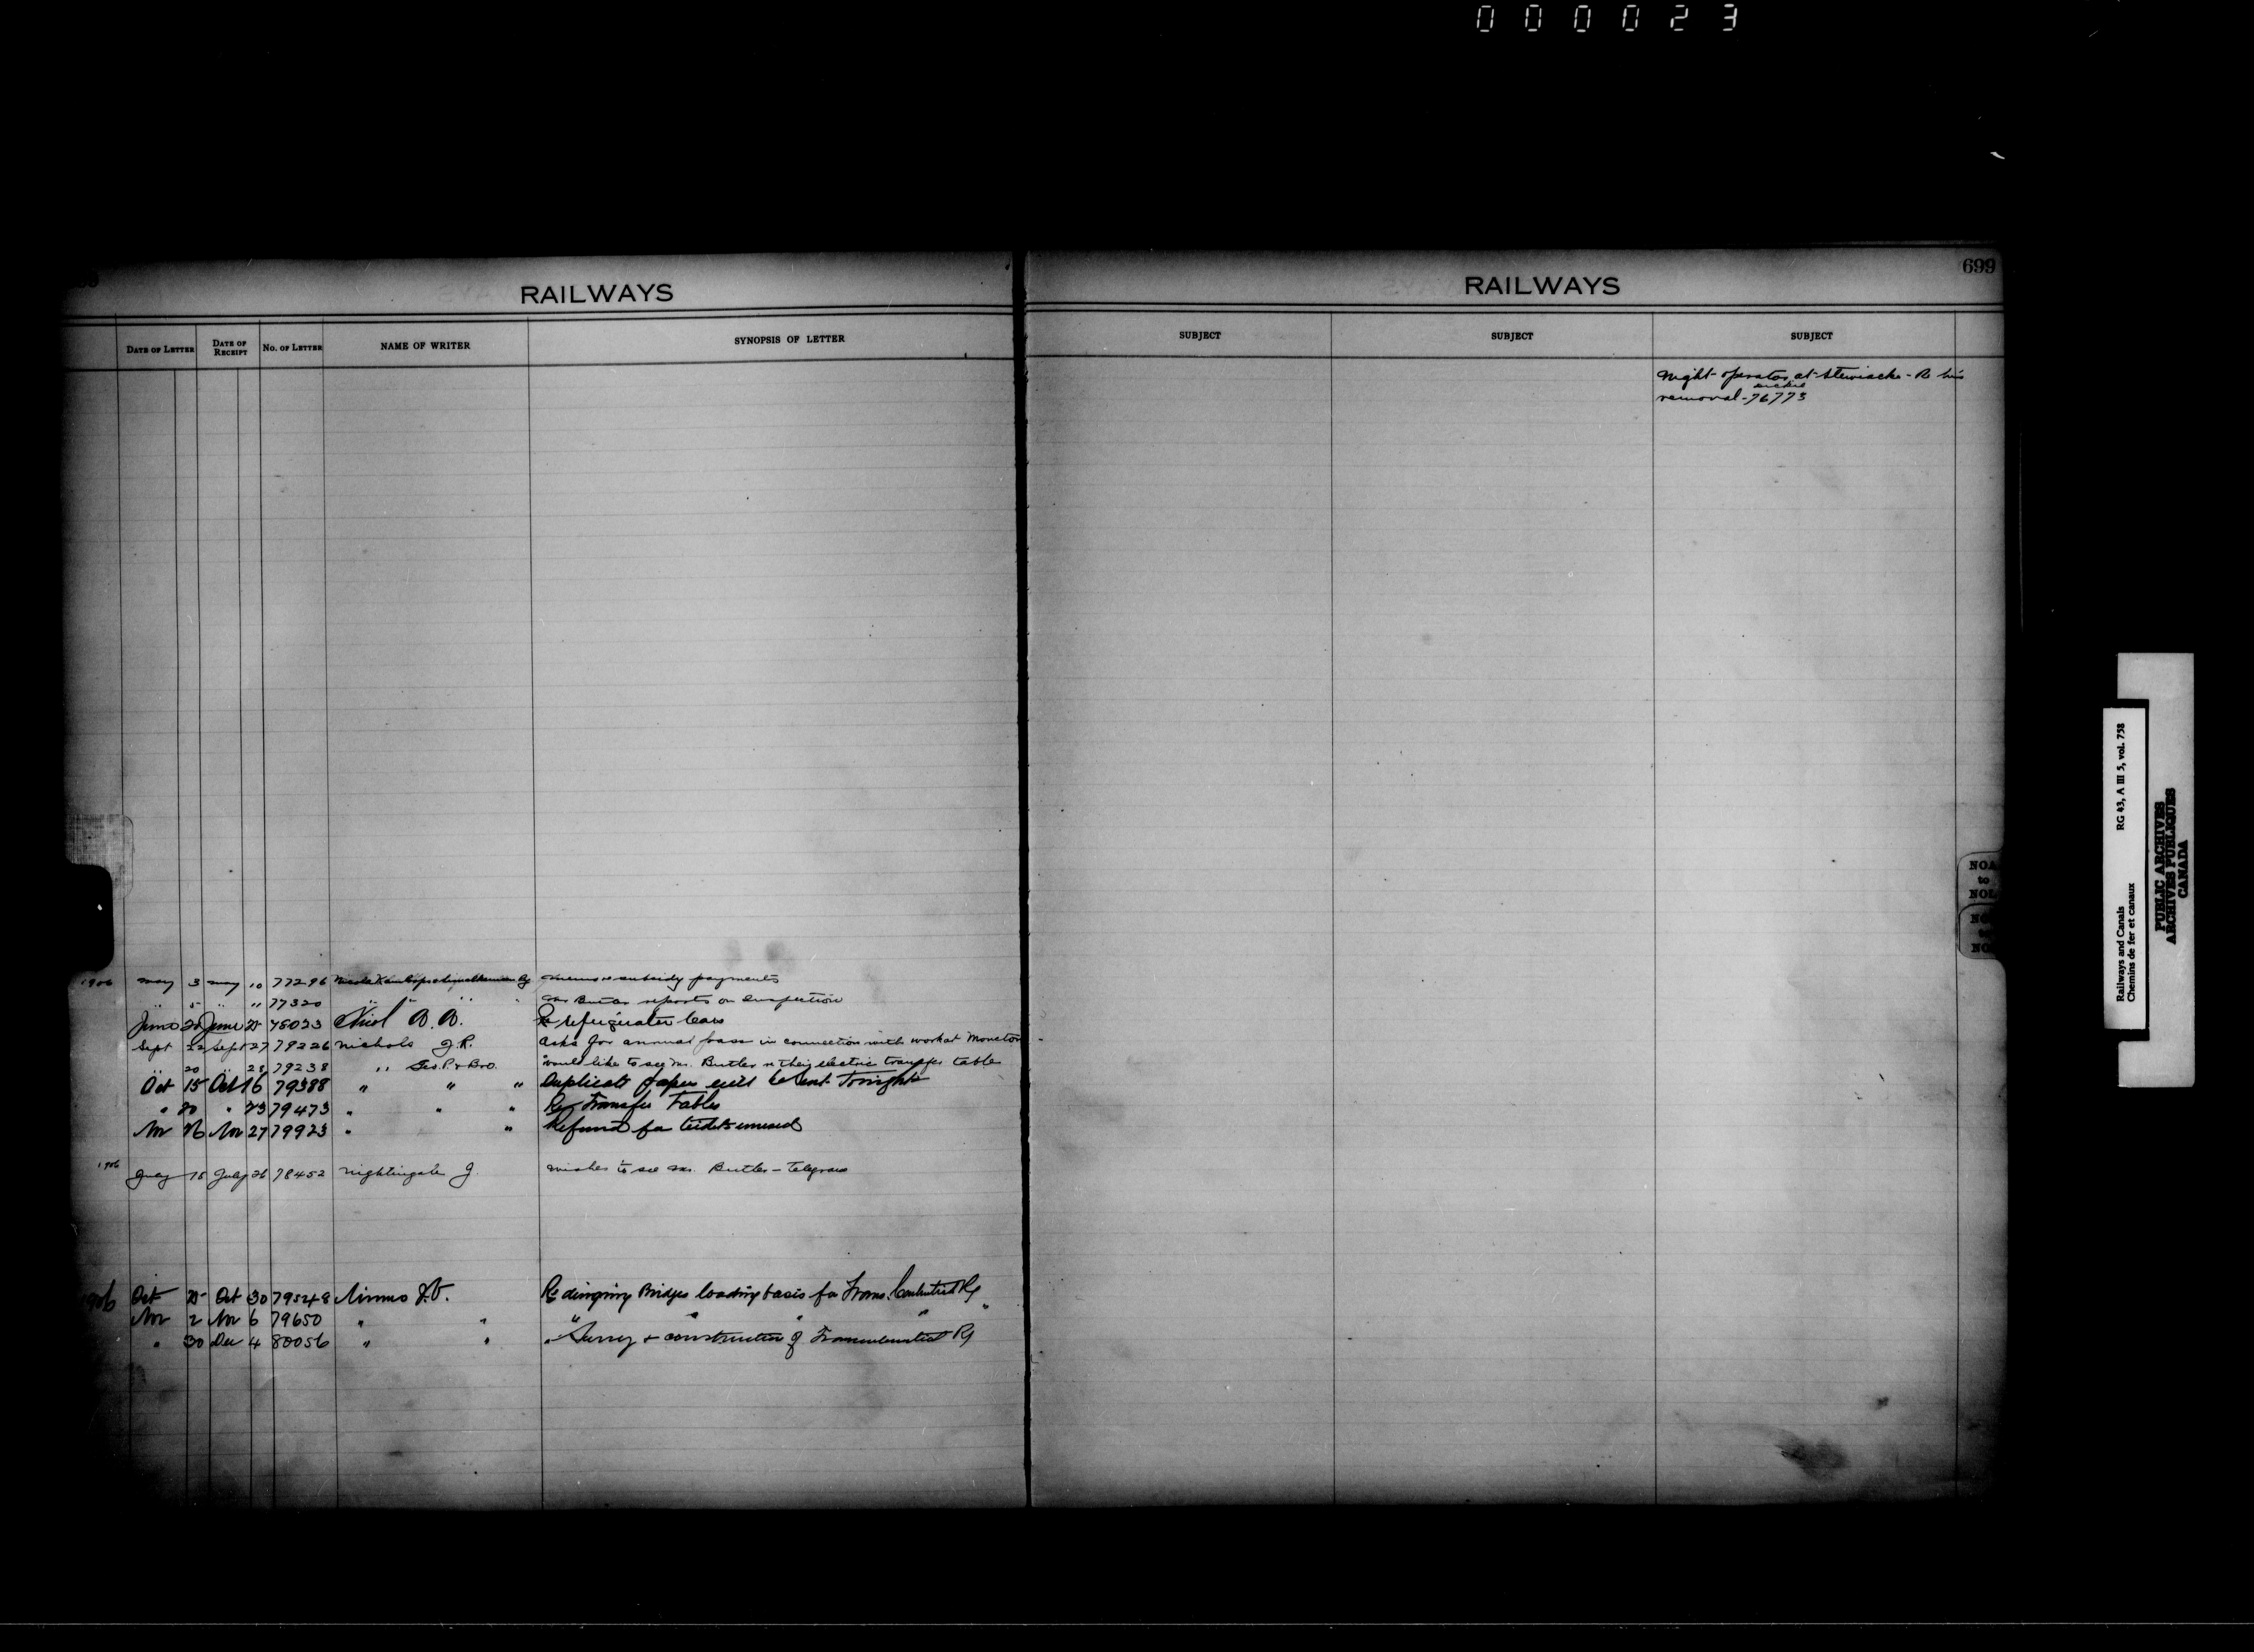 000023
RAILWAYS
DATE OF LETTER DATE OF RECEIPT No. OF LETTER NAME OF WRITER SYNOPSIS OF LETTER
1906 May 3 May 10 77296 Nicola Kamloops & Similkameen Ry Memo re subsidy payments
" 5 " " 77320 " " " " Mr Butler reports on Inspection
June 20 June 25 78023 Nicol A. B. Re refrigerator cars
Sept 22 Sept 27 79226 Nichols J.R. Asks for annual pass in connection with work at Moncton
" 20 " 28 79238 " Geo. P. & Bro. Would like to see Mr. Butler re their electric transfer table
Oct 15 Oct 16 79388 " " " Duplicate papers will be sent tonight
" 20 " 23 79473 " " " Re Transfer Tables
Nov 26 Nov 27 79923 " " Refund for tickets unused
1906 July 15 July 26 78452 Nightingale J. Wishes to see Mr. Butler - Telegram
1906 Oct 25 Oct 30 79548 Nimmo J.V. Re Bridges loading basis for Trans. Continental Ry
Nov 2 Nov 6 79650 " " " " " " "
" 30 Dec 4 80056 " " " Survey & construction of Transcontinental Ry
RAILWAYS
699
SUBJECT SUBJECT SUBJECT
Night operator at Stewiacke - Re his
removal - 76773
NOA
to
NOL
Railways and Canals RG 43, A III 5, vol. 758
Chemins de fer et canaux
PUBLIC ARCHIVES
ARCHIVES PUBLIQUES
CANADA